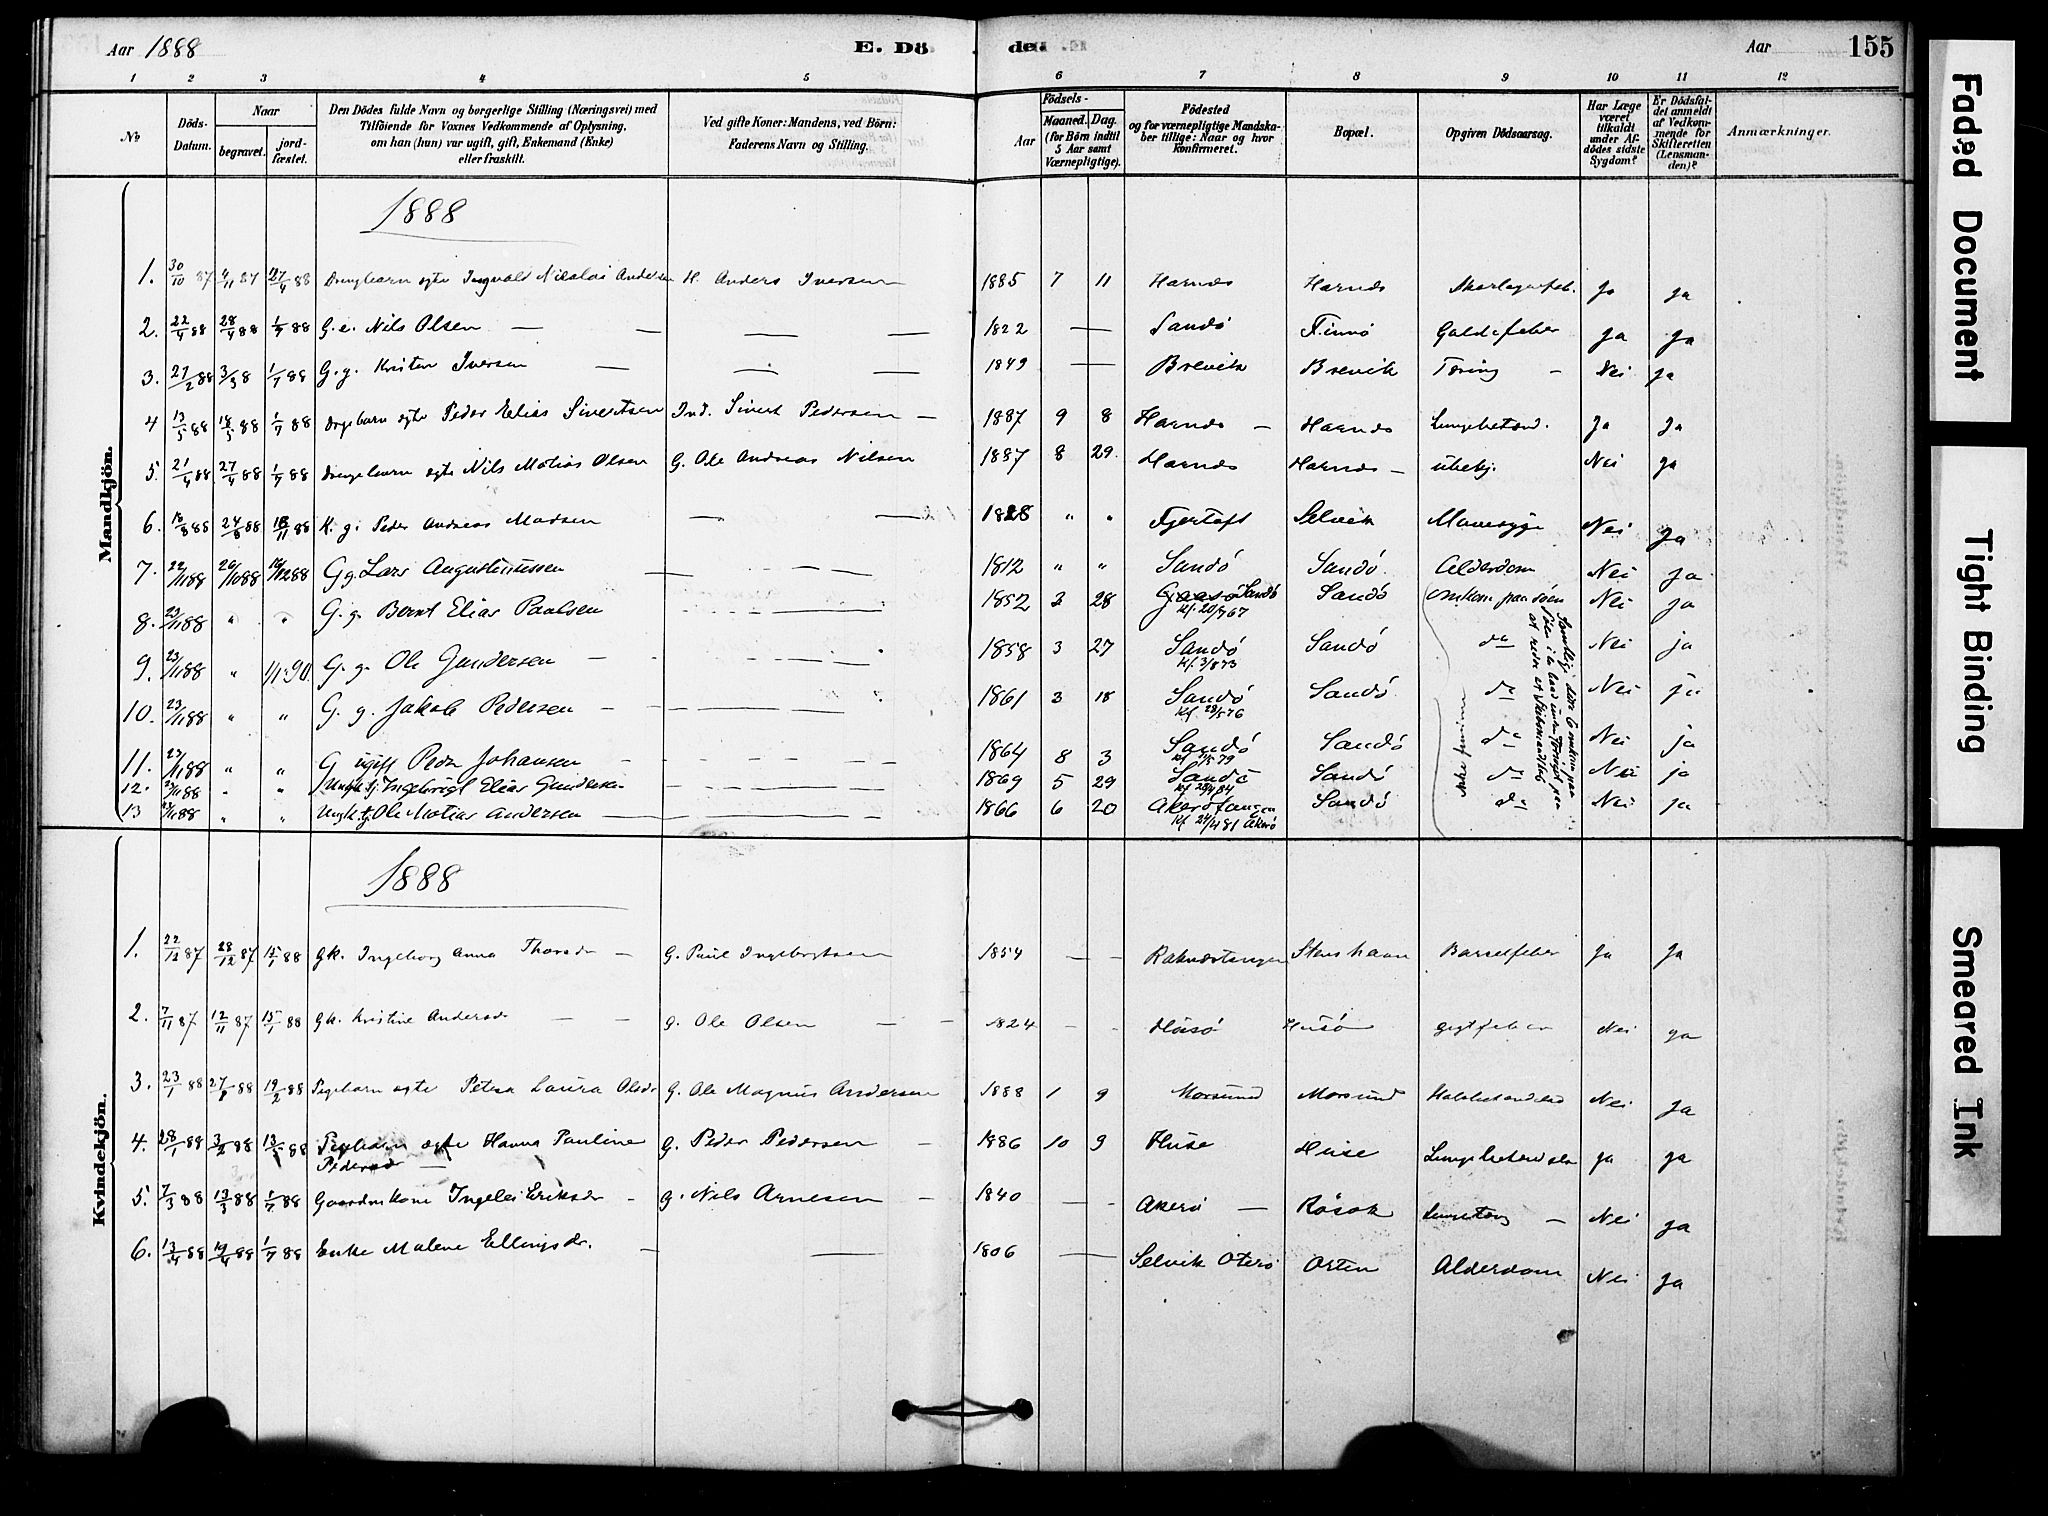 Aar 1888 E. Dö den Aar 155
1 2 3 4 5 6 7 8 9 10 11 12
No
Döds-Datum.
Naar
begravet.
jord-fæstet.
Den Dödes fulde Navn og borgerlige Stilling (Næringsvei) med
Tilföiende for Voxnes Vedkommende af Oplysning,
om han (hun) var ugift, gift, Enkemand (Enke)
eller fraskilt.
Ved gifte Koner: Mandens, ved Börn:
Faderens Navn og Stilling.
Födsels-
Aar
Maaned. Dag.
(for Börn indtil
5 Aar samt
Værnepligtige).
Födested
og for værnepligtige Mandska-
ber tillige: Naar og hvor
konfirmeret.
Bopæl.
Opgiven Dödsaarsag.
Har Læge
været
tilkaldt
under Af-
dödes sidste
Sygdom?
Er Dödsfal-
det anmeldt
af Vedkom-
mende for
Skifteretten
(Lensman-
den)?
Anmærkninger.
Mandkjön.
1888
1. 30/10 87 4/11 87 27/4 88 Drengbarn ægte Ingvald Nicolai Andersen H. Anders Iversen 1885 7 11 Harnæs Harnæs Skarlagenfeb. Ja Ja
2. 22/4 88 28/4 88 1/7 88 G.e. Nils Olsen — — — — 1822 — Sandö Finnö Galdefeber Ja Ja
3. 27/2 88 3/3 8 1/7 88 G.g. Kristen Iversen — — — 1849 — Brevik Brevik Tæring — Nei Ja
4 13/5 88 18/5 88 1/7 88 Drgebarn ægte Peder Elias Sivertsen Ind. Sivert Pedersen — 1887 9 8 Harnæs — Harnæs Lungebetænd. Ja Ja
5. 21/4 88 27/4 88 1/7 88 Drengebarn ægte Nils Matias Olsen G. Ole Andreas Nilsen 1887 8 29. Harnæs Harnæs — ubekj. Nei Ja
6. 18/8 88 24/8 88 18/11 88 K. g. Peder Andreas Madsen — — 1828 " " Fjertoft Selvik Mavesyge Nei Ja
7. 22/11 88 26/11 088 16/12 88 Gg. Lars Augustinussen — — — — 1812 " " Sandö Sandö. Alderdom Nei Ja
8. 23/11 88 " " G. g. Bernt Elias Paulsen 1852 3 28 Sandö Kf. 20/7 67 Sandö Omkom paa söen Nei Ja
9. 23/11 88 " 1/1 90. G. g. Ole Gundersen — 1858 3 27 Sandö Kf. 3/8 73 Sandö do Nei ja
10. 23/11 88 " " G. g. Jakob Pedersen — 1861 3 18 Sandö Kf. 28/5 76 Sandö. do Nei ja
11. 23/11 88 " " G ugift Peder Johansen — 1864 8 3 Sandö Kf 11/5 79 Sandö do Nei ja
12. 23/11 88 " " Ungk. g. Ingebrigt Elias Gundersen 1869 5 29 Sandö Kf 20/4 84 Sandö do Nei ja
13 23/11 88 " " Ungk. g. Ole Matias Andersen 1866 6 20 Akerötangen Kf. 24/4 81 Akerö Sandö do Nei ja
Ikke funden
Samtlige disse 6 omkom paa
Söen i en baad under Forsöget paa
at redde et Skibsmandskab
Kvindekjön.
1888
1. 22/12 87 28/12 87 15/1 88 Gk. Ingeborg Anna Thorsdr — G. Paul Ingebrigtsen 1854 — — Raknæstangen Stenshavn Barselfeber Ja Ja
2. 7/11 87 12/11 87 15/1 88 Gk. Kristine Andersdr — — G. Ole Olsen — — 1824 — — Husö Husö gigtfeber Nei Ja
3. 23/1 88 27/1 88 19/2 88 Pigebarn ægte Petra Laura Olsdr G. Ole Magnus Andersen 1888 1 9 Morsund Morsund Halsbetændelse Nei Ja
4. 28/1 88 3/2 88 13/5 88 Pigebarn ægte Hanna Pauline Pedersdr — G. Peder Pedersen — 1886 10 9 Huse Huse Lungebetændelse Ja Ja
5. 7/3 88 13/3 88 1/7 88 Gaardmkone Ingelei Eriksdr — G. Nils Arnesen — 1840 — — Akerö — Rösok Lungetær — Nei Ja
6. 13/4 88 19/4 88 1/7 88 Enke Malene Ellingsdr. — — 1806 — Selvik Oterö Orten Alderdom Nei Ja
Faded Document
Tight Binding
Smeared Ink